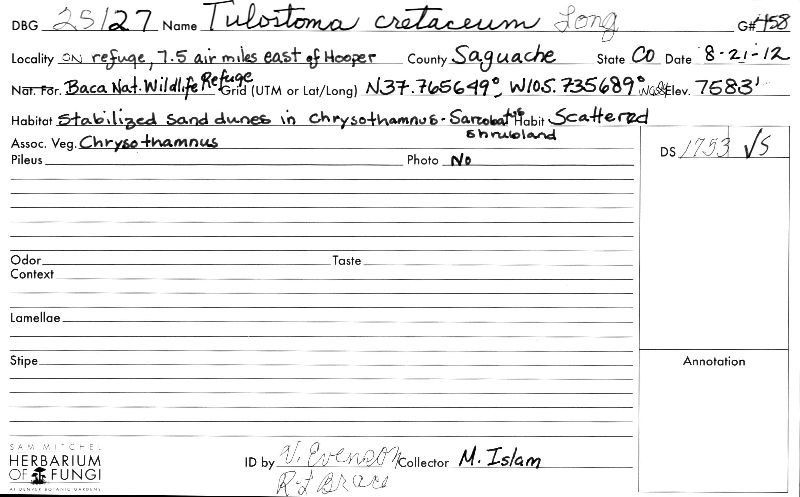 DBG 25127 Name Tulostoma cretaceum Long G# 458
Locality ON refuge, 7.5 air miles east of Hooper County Saguache State CO Date 8-21-12
Nat. For. Baca Nat. Wildlife Refuge Grid (UTM or Lat/Long) N37.765649°, W105.735689° Elev. 7583'
Habitat Stabilized sand dunes in chrysothamnus-Sarcobatus shrubland Habit Scattered
Assoc. Veg. Chrysothamnus
Pileus Photo No
DS 1753 √S
Odor Taste
Context
Lamellae
Stipe
Annotation
SAM MITCHEL
HERBARIUM
OF FUNGI
AT DENVER BOTANIC GARDENS
ID by V. Evenson Collector M. Islam